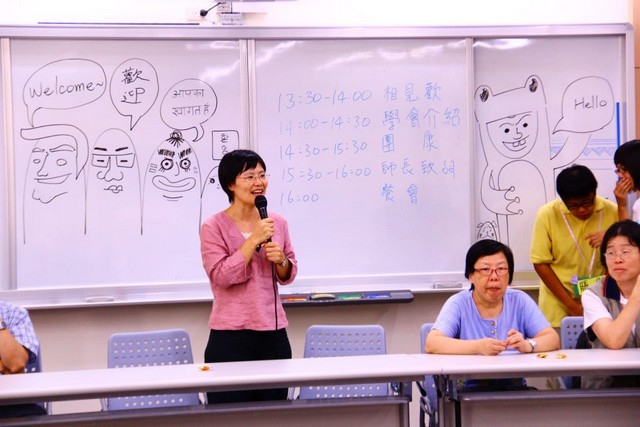 Welcome~
歡
迎
आपका
स्वागत है
13:30-14:00 相見歡
14:00-14:30 學會介紹
14:30-15:30 團康
15:30-16:00 師長致詞
16:00 餐會
Hello